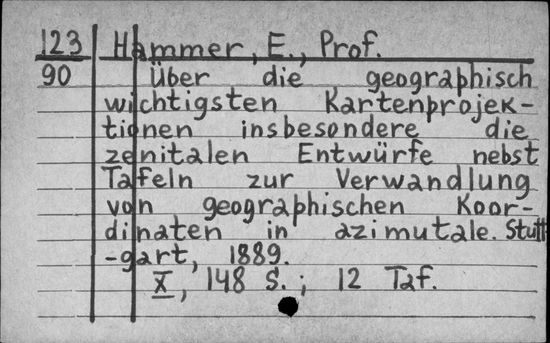 123 Hammer, E., Prof.
90 Über die geographisch
wichtigsten Kartenprojek-
tionen insbesondere die
zenitalen Entwürfe nebst
Tafeln zur Verwandlung
von geographischen Koor-
dinaten in azimutale. Stutt
-gart, 1889.
X, 148 S.; 12 Taf.